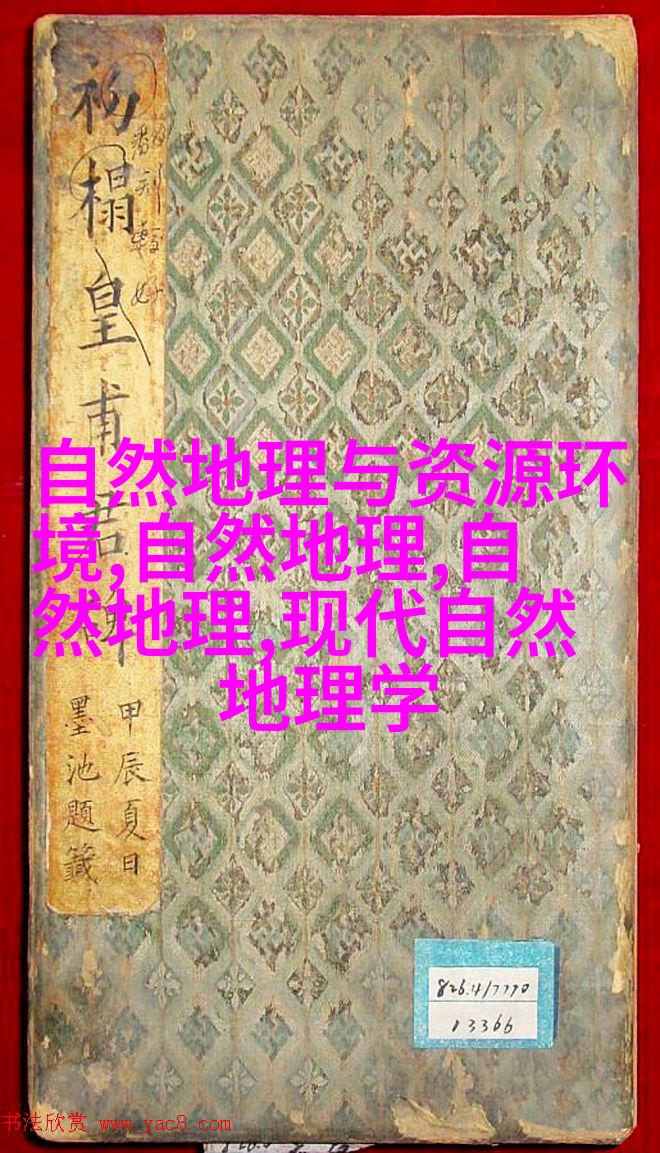 初榻皇甫君碑
翻刻較好
甲辰夏日
墨池題籤
自然地理与资源环
境,自然地理,自
然地理,现代自然
地理学
826.4/7770
13366
书法欣赏 www.yac8.com